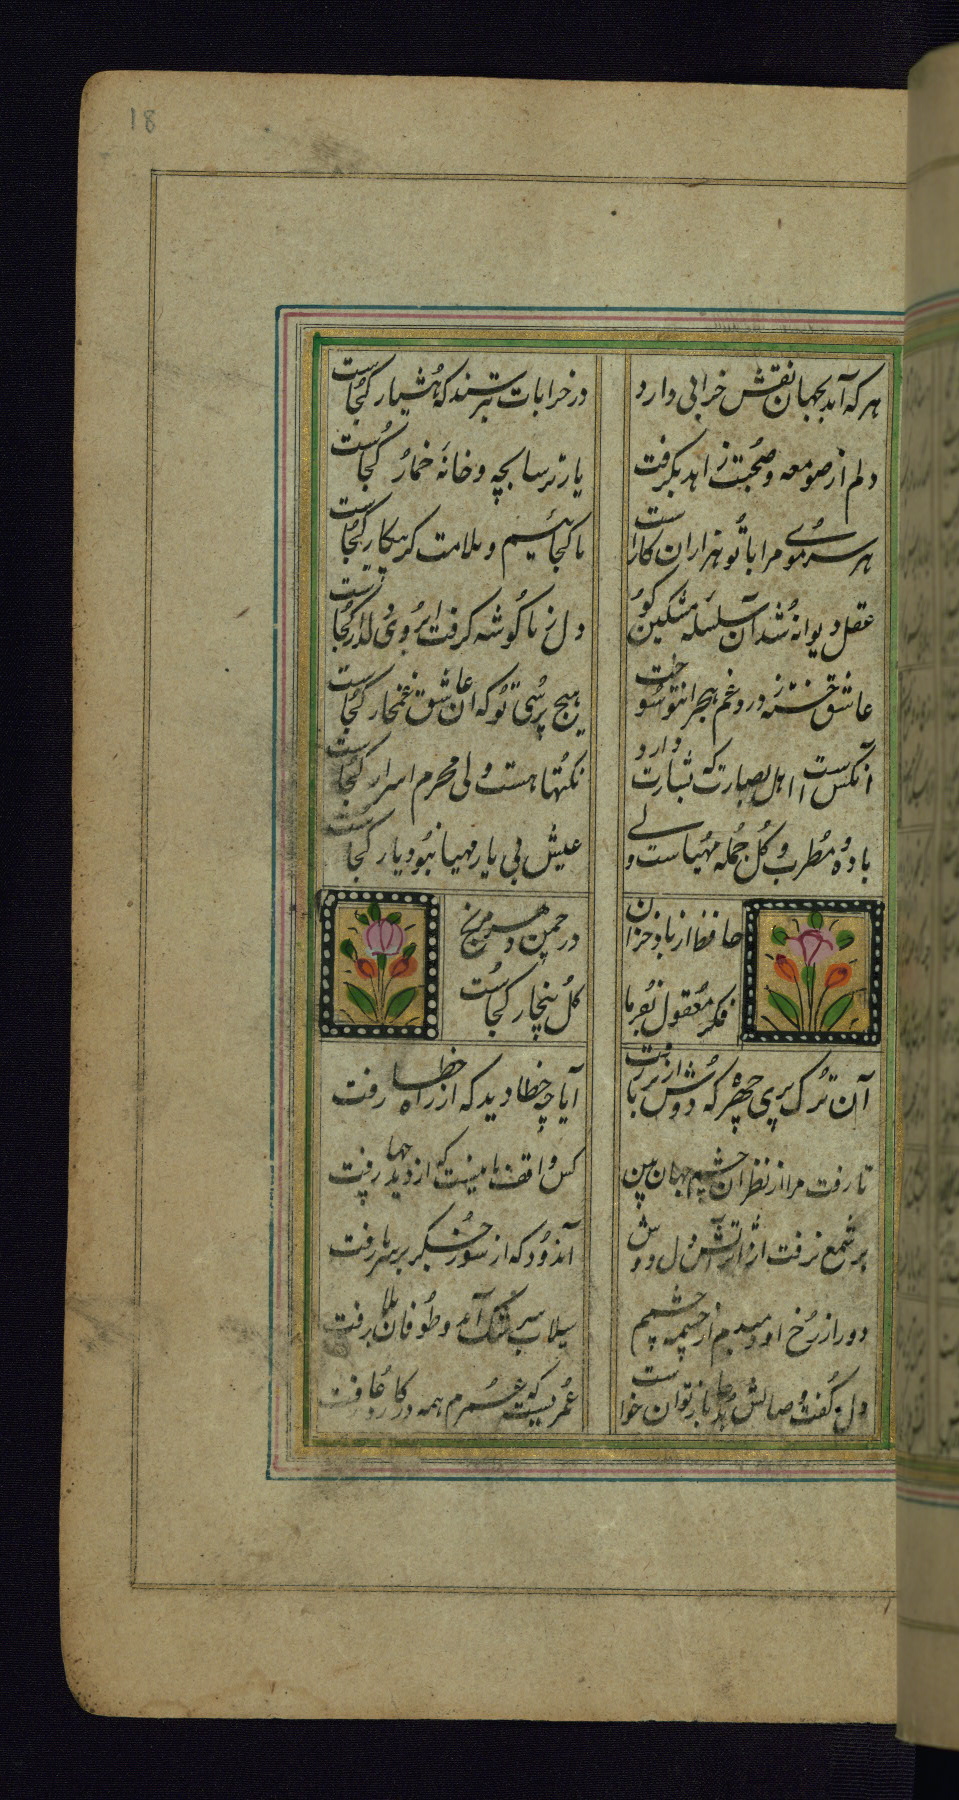 18
هر که آمد بجهان نقش خرابی دارد
در خرابات بپرسند که هشیار کجاست
دلم از صومعه و صحبت زاهد بگرفت
یار ترسا بچه و خانهٔ خمار کجاست
هر سر موی مرا با تو هزاران کار است
ما کجائیم و ملامت گر بیکار کجاست
عقل دیوانه شد آن سلسله مشکین کو
دل ز ما گوشه گرفت ابروی دلدار کجاست
عاشق خسته ز درد غم هجران تو سوخت
هیچ پرسی تو که ان عاشق غمخوار کجاست
آنکس است اهل بصارت که بشارت دارد
نکتها هست ولی محرم اسرار کجاست
باده و مطرب و گل جمله مهیاست ولی
عیش بی یار مهیا نبود یار کجاست
حافظا از باد خزان
در چمن دهر مرنج
فکر معقول بفرما
گل بیخار کجاست
آن ترک پری چهره که دوش از بر ما رفت
آیا چه خطا دید که از راه خطا رفت
تا رفت مرا از نظر ان چشم جهان بین
کس واقف ما نیست که از دیده چها رفت
بر شمع نرفت از اثر آتش دل دوش
آندود که از سوز جگر بر سر ما رفت
دور از رخ او دمبدم از چشمه چشمم
سیلاب سرشک آمد و طوفان بلا رفت
دل گفت وصالش بدعا باز توان خواست
عمریست که عمرم همه در کار دعا رفت